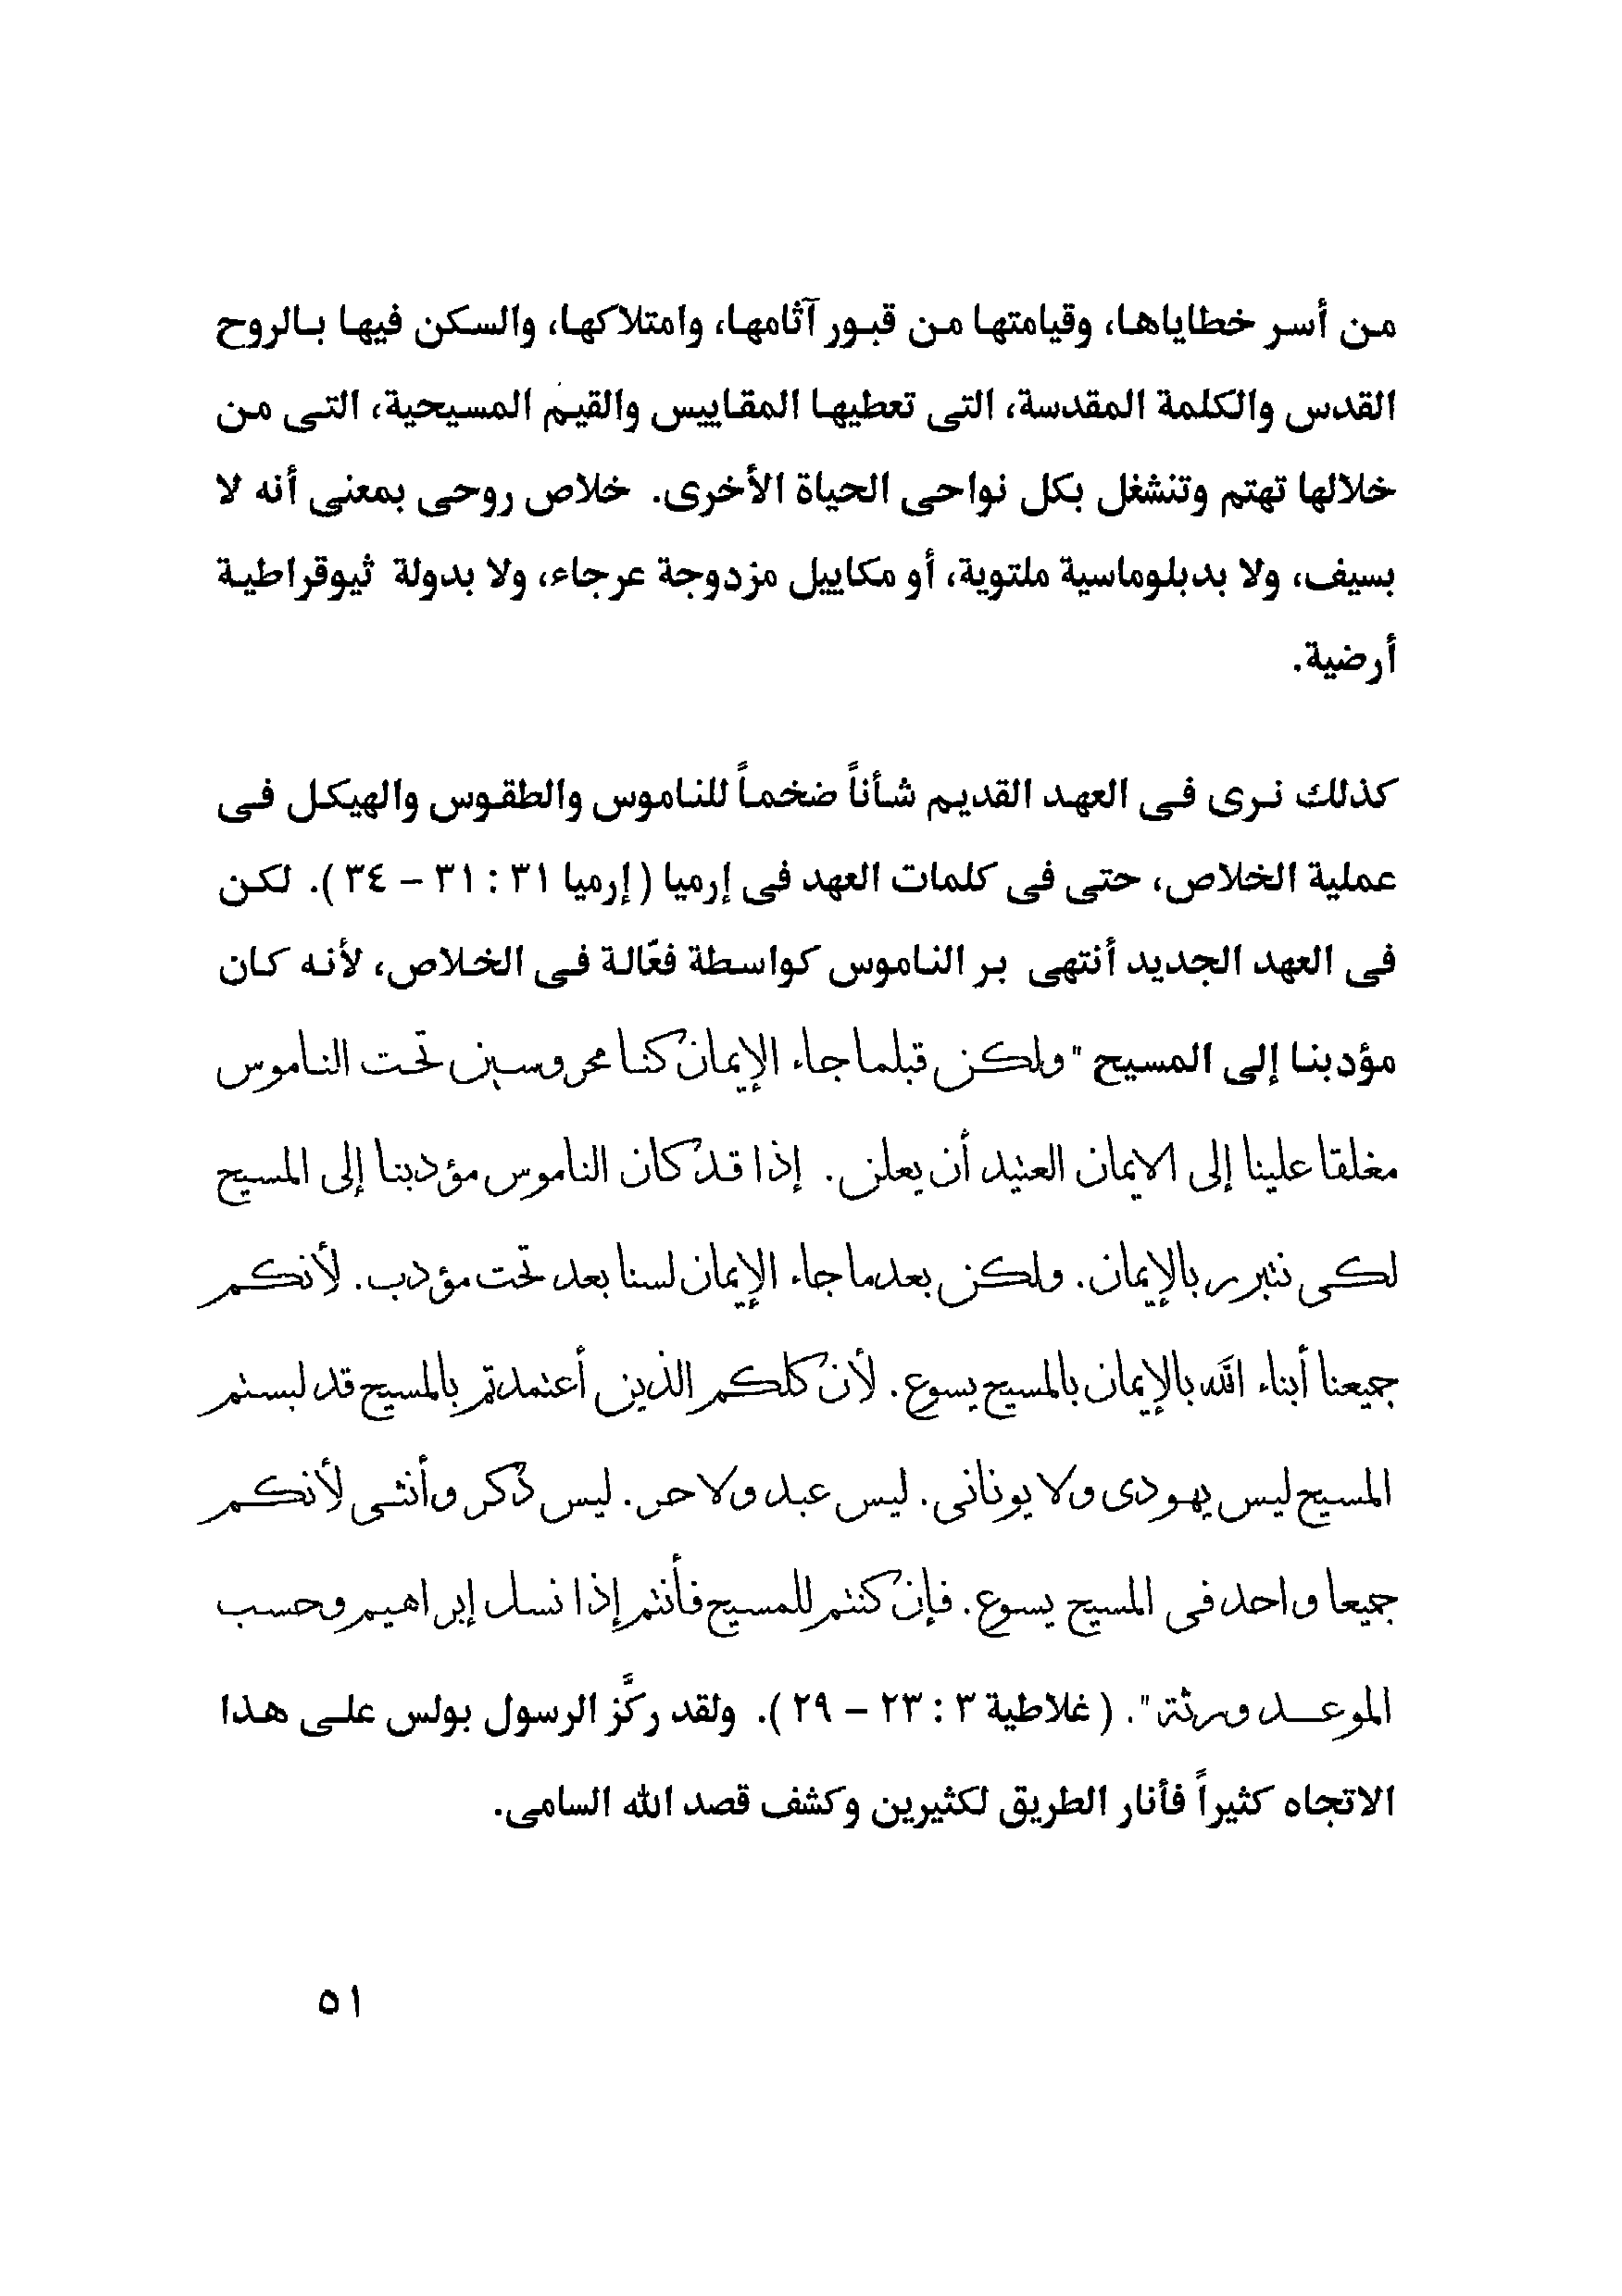 من أسر خطاياها، وقيامتها من قبور آثامها، وامتلاكها، والسكن فيها بالروح
القدس والكلمة المقدسة، التى تعطيها المقاييس والقيم المسيحية، التى من
خلالها تهتم وتنشغل بكل نواحى الحياة الأخرى. خلاص روحى بمعنى أنه لا
بسيف، ولا بدبلوماسية ملتوية، أو مكاييل مزدوجة عرجاء، ولا بدولة ثيوقراطية
أرضية.
كذلك نرى فى العهد القديم شأناً ضخماً للناموس والطقوس والهيكل فى
عملية الخلاص، حتى فى كلمات العهد فى إرميا ( إرميا ٣١ : ٣١ – ٣٤ ). لكن
فى العهد الجديد أنتهى بر الناموس كواسطة فعّالة فى الخلاص، لأنه كان
مؤدبنا إلى المسيح " ولكن قبلما جاء الإيمان كنا محروسين تحت الناموس
مغلقا علينا إلى الايمان العتيد أن يعلن. إذا قد كان الناموس مؤدبنا إلى المسيح
لكى نتبرر بالإيمان. ولكن بعدما جاء الإيمان لسنا بعد تحت مؤدب. لأنكم
جميعنا أبناء الله بالإيمان بالمسيح يسوع. لأن كلكم الذين أعتمدتم بالمسيح قد لبستم
المسيح ليس يهودى ولا يونانى. ليس عبد ولا حر. ليس ذكر وأنثى لأنكم
جميعا واحد فى المسيح يسوع. فإن كنتم للمسيح فأنتم إذا نسل إبراهيم وحسب
الموعد ورثة ". ( غلاطية ٣ : ٢٣ – ٢٩ ). ولقد ركَّز الرسول بولس على هذا
الاتجاه كثيراً فأنار الطريق لكثيرين وكشف قصد الله السامى.
٥١